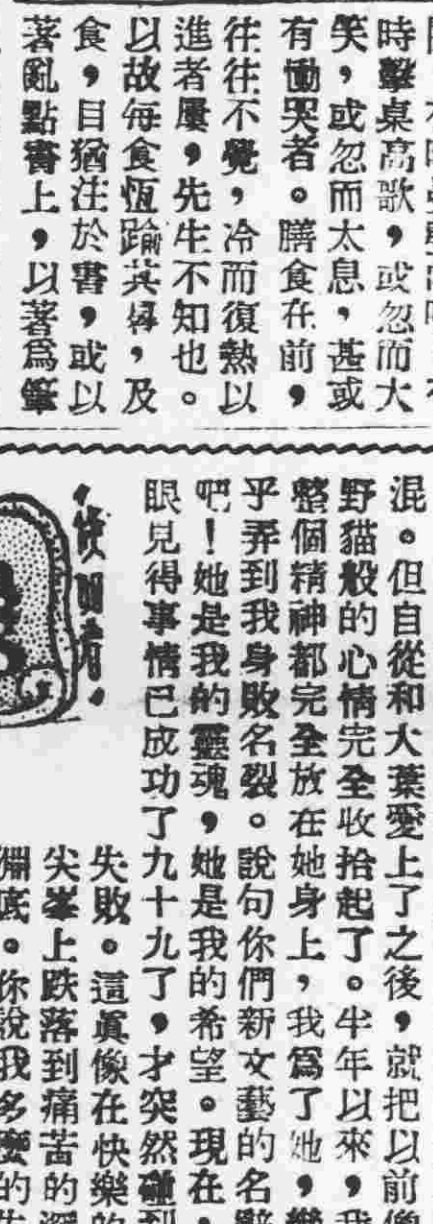 時擊桌高歌，或忽而大
笑，或忽而太息，甚或
有慟哭者。膳食在前，
往往不覺，冷而復熱以
進者屢，先生不知也。
以故每食恆踰其晷，及
食，目猶注於書，或以
著亂點書上，以著爲筆
混。但自從和大葉愛上了之後，就把以前像
野貓般的心情完全收拾起了。半年以來，我
整個精神都完全放在她身上，我爲了她，
乎弄到我身敗名裂。說句你們新文藝的名
吧！她是我的靈魂，她是我的希望。現在，
眼見得事情已成功了九十九了，才突然碰到
失敗。這眞像在快樂的
尖峯上跌落到痛苦的深
淵底。你說我多麼的